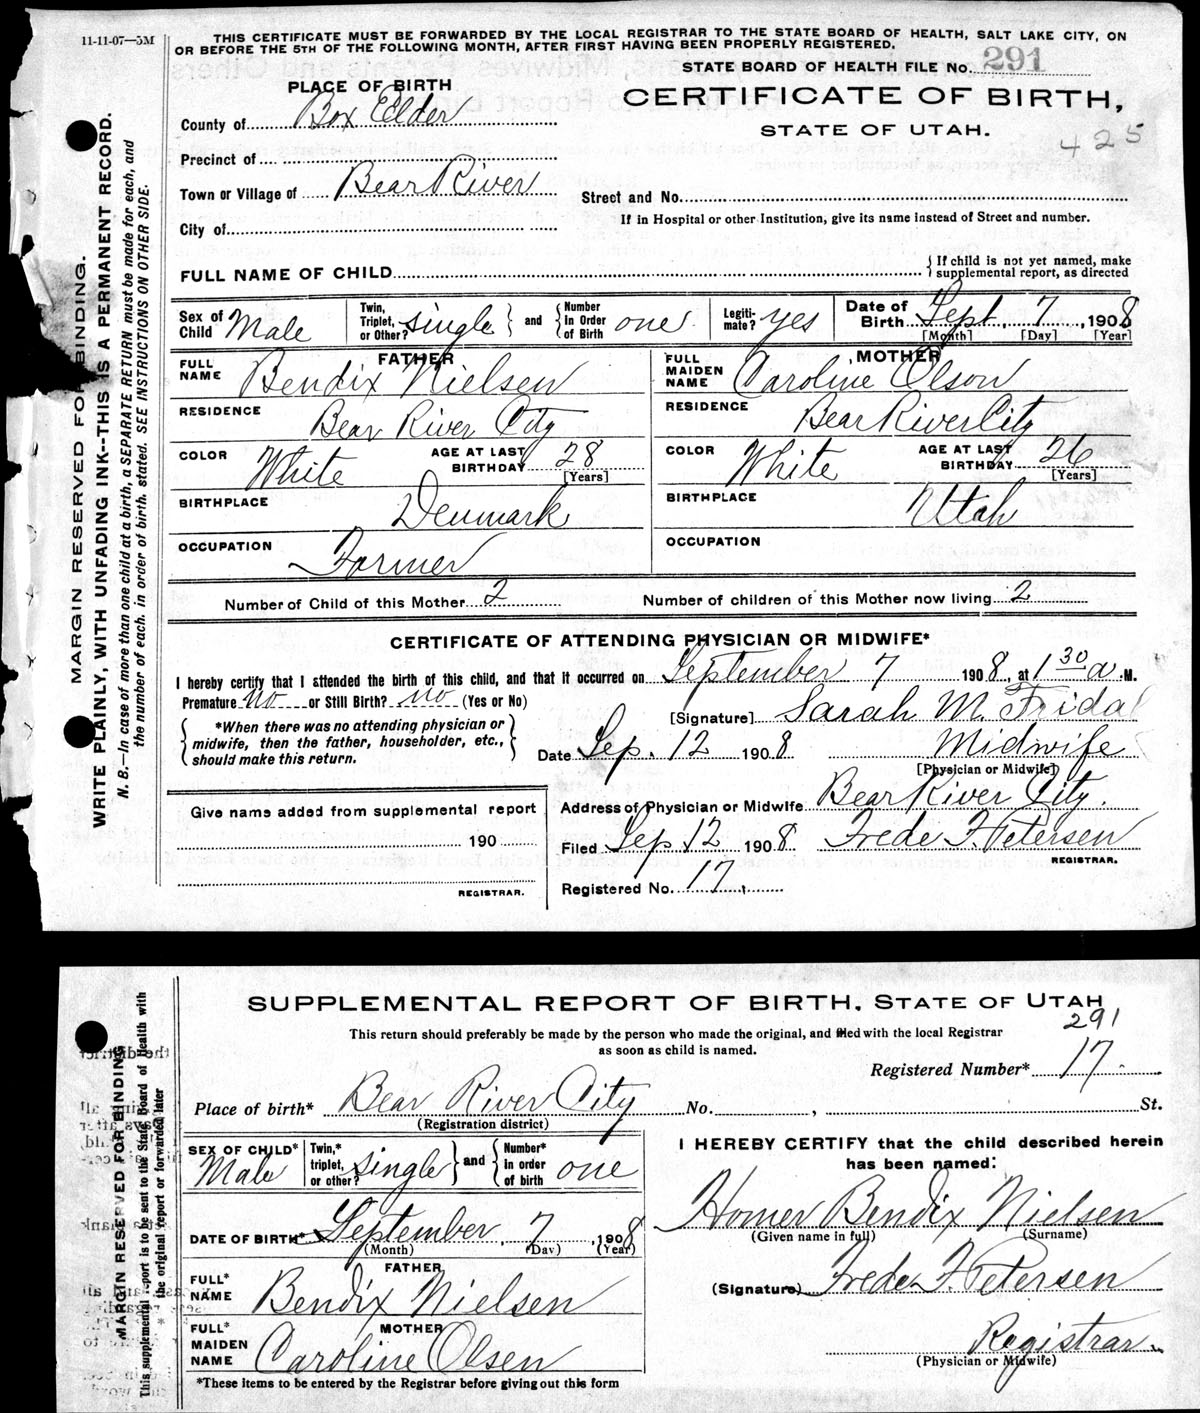 11-11-07—5M
THIS CERTIFICATE MUST BE FORWARDED BY THE LOCAL REGISTRAR TO THE STATE BOARD OF HEALTH, SALT LAKE CITY, ON
OR BEFORE THE 5TH OF THE FOLLOWING MONTH, AFTER FIRST HAVING BEEN PROPERLY REGISTERED.
STATE BOARD OF HEALTH FILE No. 291
PLACE OF BIRTH
CERTIFICATE OF BIRTH,
STATE OF UTAH.
425
County of Box Elder
Precinct of
Town or Village of Bear River
Street and No.
If in Hospital or other Institution, give its name instead of Street and number.
City of
FULL NAME OF CHILD
{ If child is not yet named, make
supplemental report, as directed
Sex of Child Male
Twin, Triplet, or Other? single } and { Number In Order of Birth one
Legitimate? yes
Date of Birth Sept. 7, 1908
[Month] [Day] [Year]
FATHER
FULL NAME Bendix Nielsen
MOTHER
FULL MAIDEN NAME Caroline Olson
RESIDENCE Bear River City
RESIDENCE Bear River City
COLOR White AGE AT LAST BIRTHDAY 28 [Years]
COLOR White AGE AT LAST BIRTHDAY 26 [Years]
BIRTHPLACE Denmark
BIRTHPLACE Utah
OCCUPATION Farmer
OCCUPATION
Number of Child of this Mother 2
Number of children of this Mother now living 2
CERTIFICATE OF ATTENDING PHYSICIAN OR MIDWIFE*
I hereby certify that I attended the birth of this child, and that it occurred on September 7 1908, at 1 30 a. M.
Premature no or Still Birth? no (Yes or No)
{ *When there was no attending physician or
midwife, then the father, householder, etc.,
should make this return. }
[Signature] Sarah M. Fridal
Date Sep. 12 1908
Midwife
[Physician or Midwife]
Address of Physician or Midwife Bear River City.
Give name added from supplemental report
190
REGISTRAR.
Filed Sep 12 1908 Frede F. Petersen
REGISTRAR.
Registered No. 17.
MARGIN RESERVED FOR BINDING.
WRITE PLAINLY, WITH UNFADING INK--THIS IS A PERMANENT RECORD.
N. B.—In case of more than one child at a birth, a SEPARATE RETURN must be made for each, and
the number of each, in order of birth, stated. SEE INSTRUCTIONS ON OTHER SIDE.
SUPPLEMENTAL REPORT OF BIRTH, STATE OF UTAH
291
This return should preferably be made by the person who made the original, and filed with the local Registrar
as soon as child is named.
Registered Number* 17.
Place of birth* Bear River City No. , St.
(Registration district)
SEX OF CHILD* Male
Twin,* triplet, or other? single } and { Number* in order of birth one
DATE OF BIRTH* September, 7, 1908
(Month) (Day) (Year)
FATHER
FULL* NAME Bendix Nielsen
MOTHER
FULL* MAIDEN NAME Caroline Olsen
*These items to be entered by the Registrar before giving out this form
I HEREBY CERTIFY that the child described herein
has been named:
Homer Bendix Nielsen
(Given name in full) (Surname)
(Signature) Frede F. Petersen
Registrar
(Physician or Midwife)
MARGIN RESERVED FOR BINDING
This supplemental report is to be sent to the State Board of Health with
the original report or forwarded later